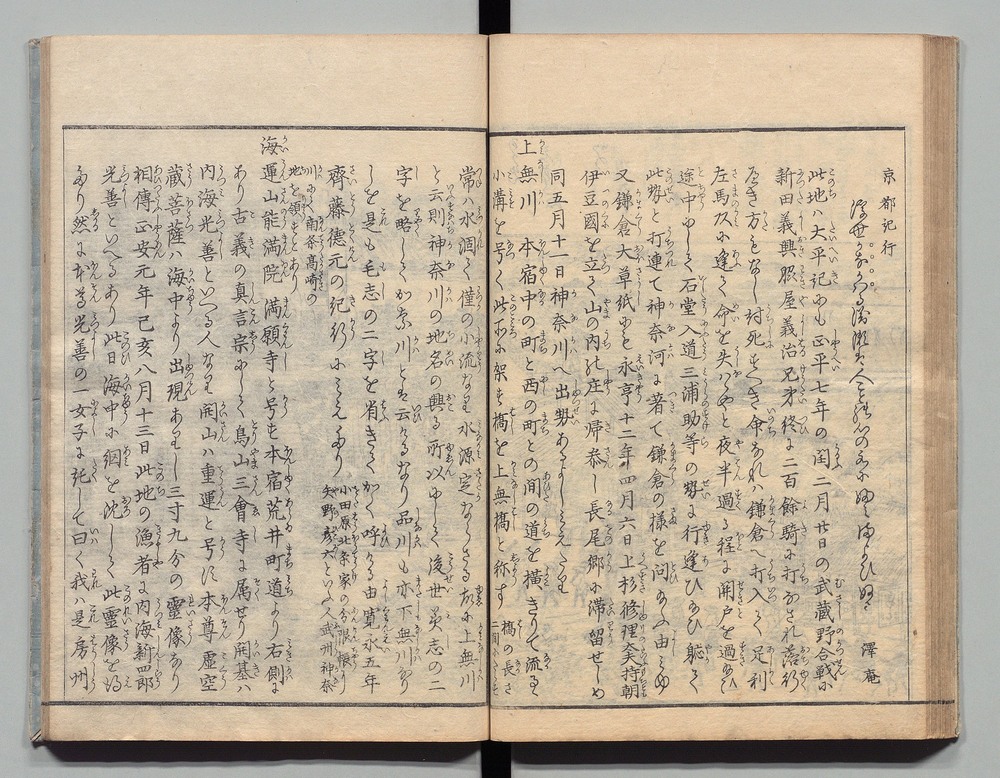 京都記行
澤庵
此地ハ太平記にも正平七年の閏二月廿日の武蔵野合戦に
新田義興脇屋義治兄弟終に二百餘騎に打なされ落行
べき方もなし討死すべき命なれハ鎌倉へ打入て足利
左馬頭に逢て命を失ハめと夜半過る程に関戸を過
途中にして石堂入道三浦助等の勢に行逢ひ
此勢と打連て神奈河に著て鎌倉の様を問
又鎌倉大草紙にも永亨十二年四月六日上杉修理大夫持朝
伊豆國を立て山の内の庄に帰参し長尾郷に滞留せしめ
同五月十一日神奈川へ出勢
上無川 本宿中の町と西の町との間の道を横きりて流るゝ
小溝を号く此所に架す橋を上無橋と称す 橋の長さ二間
常ハ水涸て僅の小流なり水源定ならさる故に上無川
と云則神奈川の地名の興る所以にして後世美志の二
字を略してかな川とも云なり品川も亦下無川
しを是も毛志の二字を省きてかく呼るなり寛永五年
齊藤徳元の紀行にみえたり 小田原北条家の分限帳に矢野彦六といふ人武州神奈
川にて地を領すとあり
海運山能満院 満願寺と号す本宿荒井町道より右側に
あり古義の真言宗にして鳥山三會寺に属せり開基ハ
内海光善といへる人なり開山ハ重運と号す本尊虚空
蔵菩薩ハ海中より出現ありし三寸九分の靈像なり
相傳正安元年己亥八月十三日此地の漁者に内海新四郎
光善といへるあり此日海中に網を沈して此靈像を得
たり然に本尊光善の一女子に託して曰く我ハ是房州